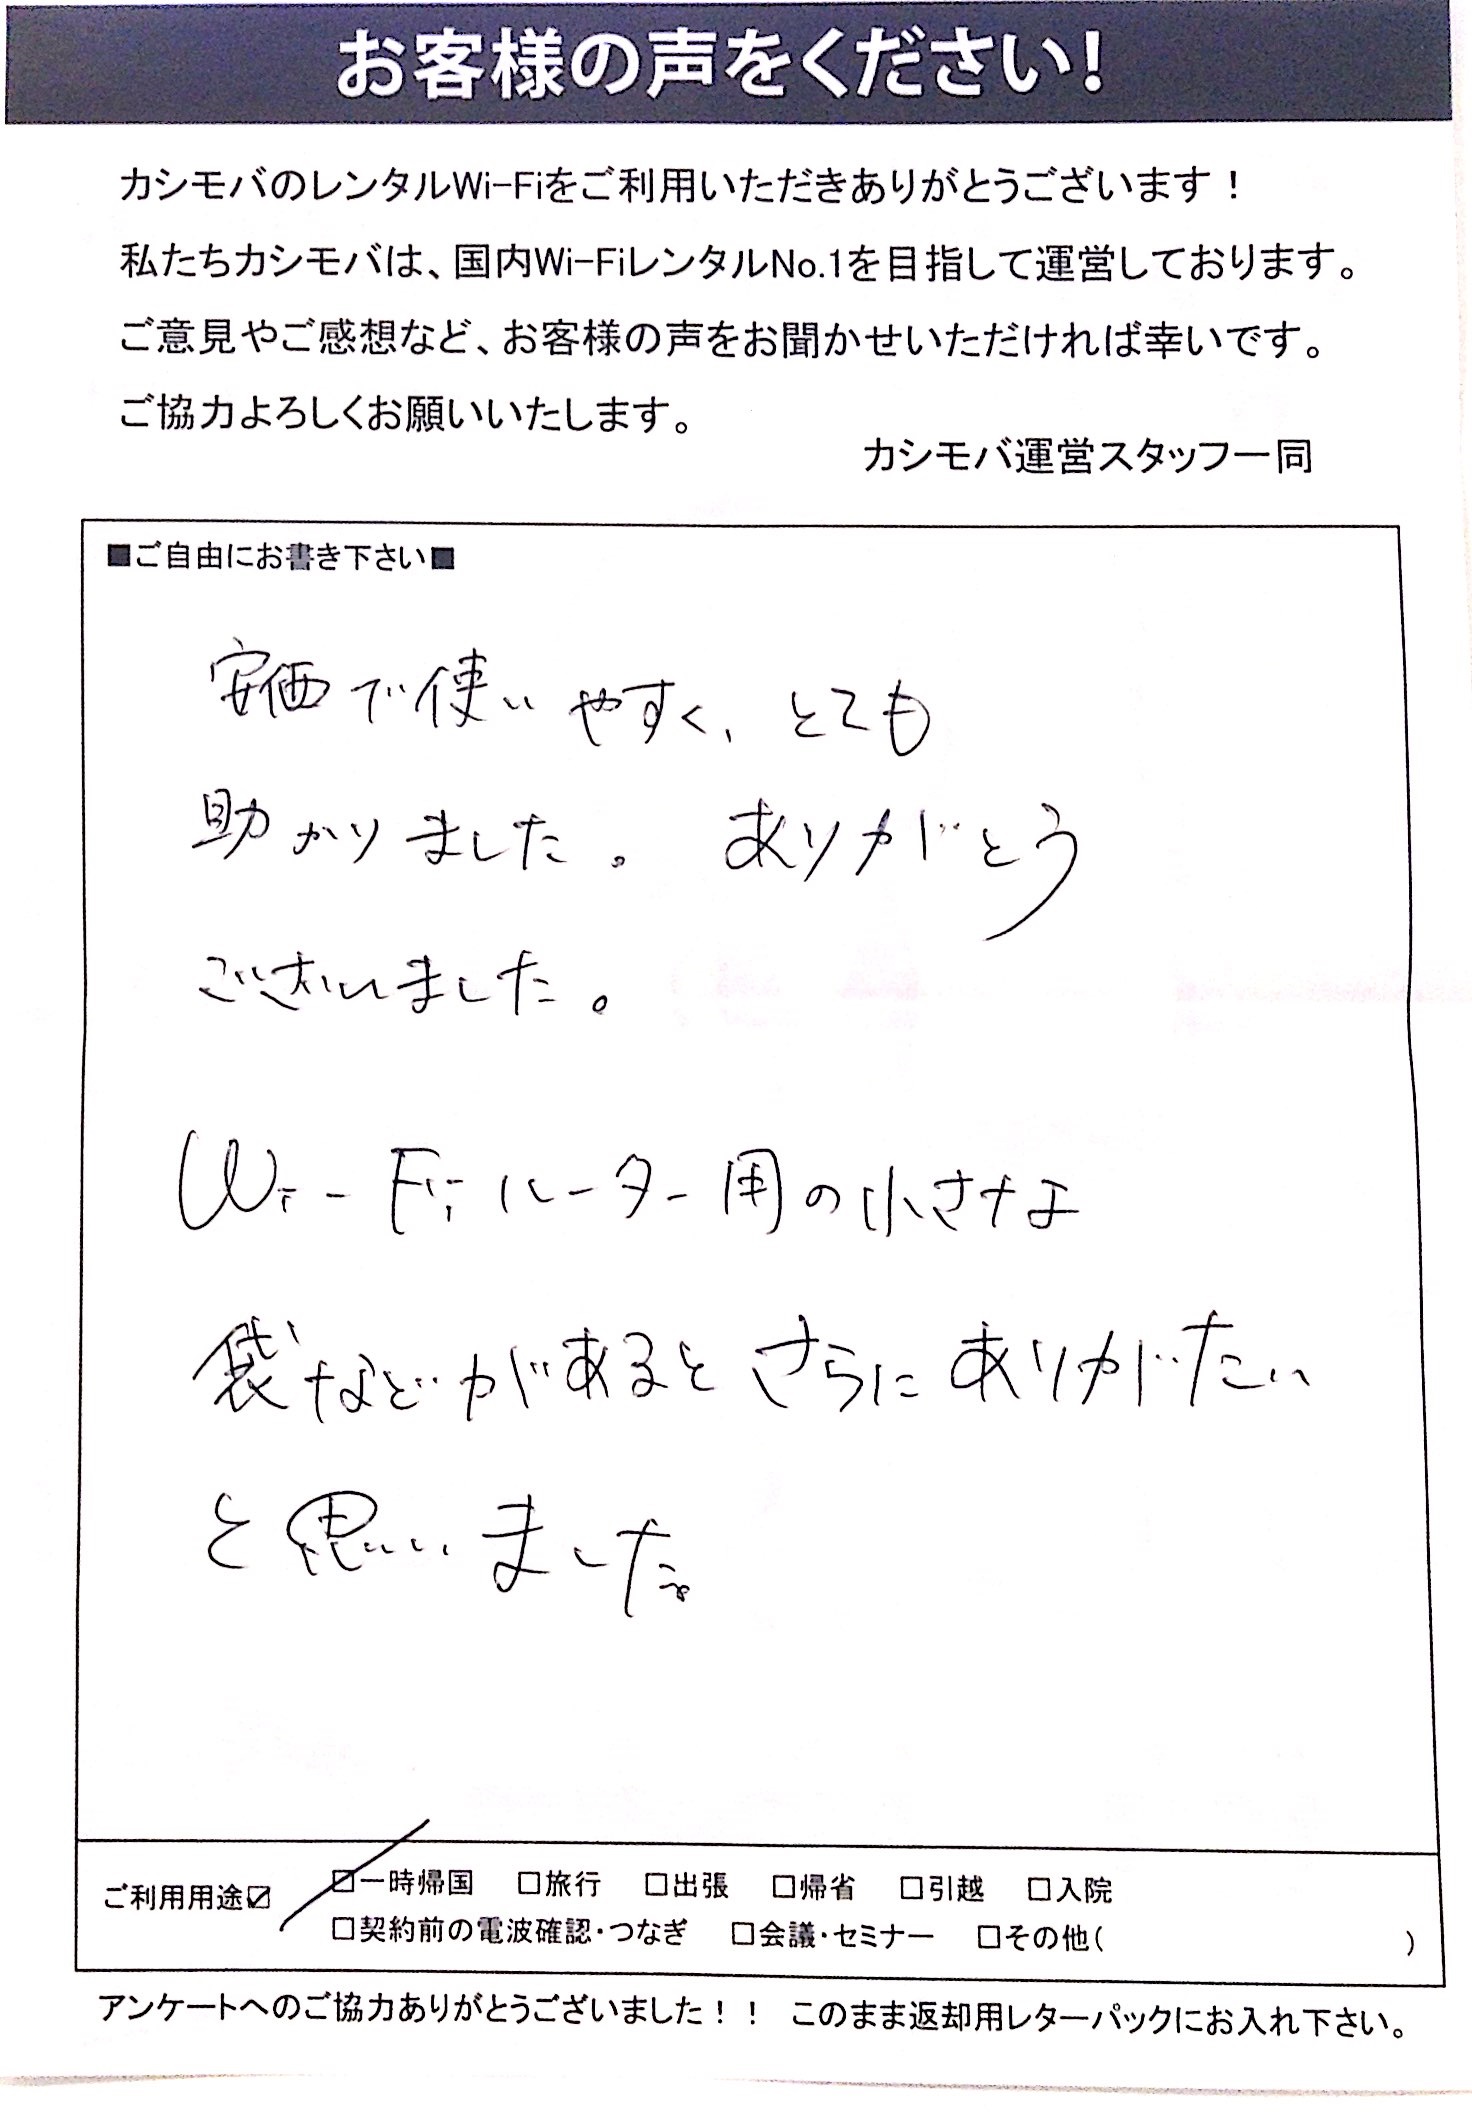 お客様の声をください!
カシモバのレンタルWi-Fiをご利用いただきありがとうございます！
私たちカシモバは、国内Wi-FiレンタルNo.1を目指して運営しております。
ご意見やご感想など、お客様の声をお聞かせいただければ幸いです。
ご協力よろしくお願いいたします。
カシモバ運営スタッフ一同
■ご自由にお書き下さい■
安価で使いやすく、とても
助かりました。ありがとう
ございました。
Wi-Fiルーター用の小さな
袋などがあるとさらにありがたい
と思いました。
ご利用用途☑ □一時帰国 □旅行 □出張 □帰省 □引越 □入院
□契約前の電波確認・つなぎ □会議・セミナー □その他( )
アンケートへのご協力ありがとうございました！！ このまま返却用レターパックにお入れ下さい。